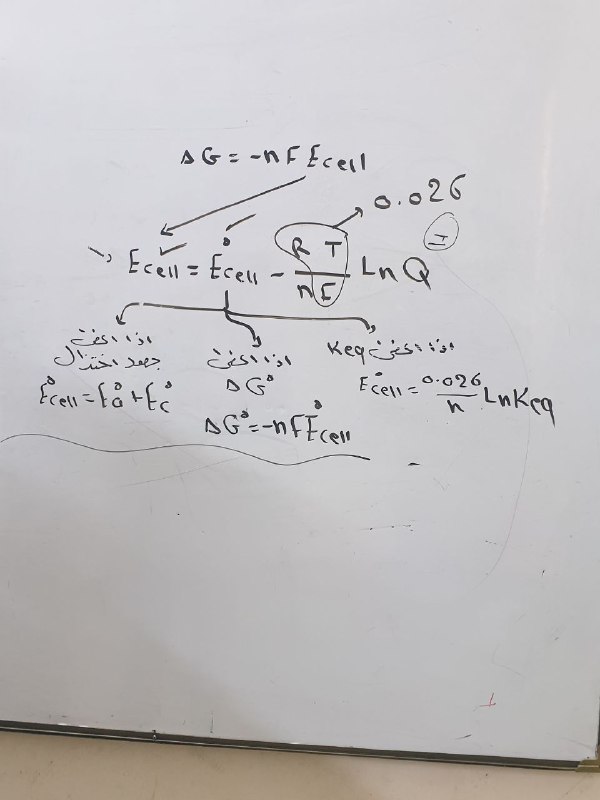 ΔG = -nFEcell
0.026
Ecell = E°cell - RT/nF Ln Q
اذا اعطى جهد اختزال
E°cell = E°a + E°c
اذا اعطى ΔG°
ΔG° = -nFE°cell
اذا اعطى Keq
E°cell = 0.026/n Ln Keq